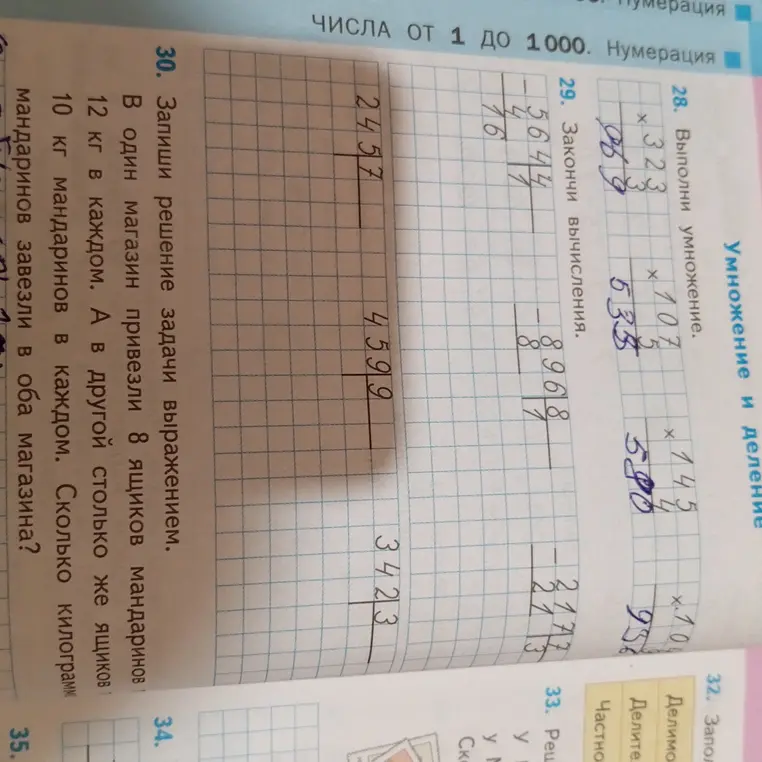 Нумерация
ЧИСЛА ОТ 1 ДО 1000. Нумерация
Умножение и деление
28. Выполни умножение.
× 323 × 107 × 145 × 10
3 5 4
069 535 580
29. Закончи вычисления.
− 564 4 − 896 8 − 217 7
4 1 8 1 21 3
16
245 7 459 9 342 3
30. Запиши решение задачи выражением.
В один магазин привезли 8 ящиков мандаринов
12 кг в каждом. А в другой столько же ящиков
10 кг мандаринов в каждом. Сколько килограмм
мандаринов завезли в оба магазина?
32. Запол
Делимо
Делите
Частно
33. Реш
У
У
Ск
34.
35.